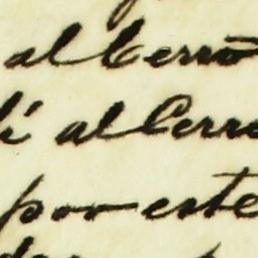 al Cerro
al Cerro
por este